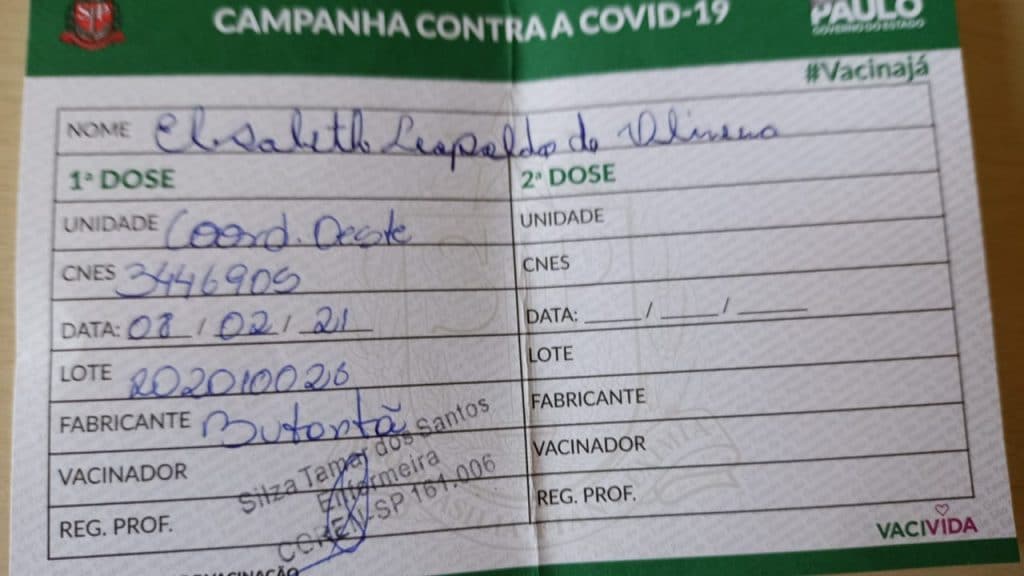 CAMPANHA CONTRA A COVID-19
SP
PAULO
GOVERNO DO ESTADO
#Vacinajá
NOME Elisabeth Leopoldo de Oliveira
1ª DOSE
UNIDADE Coord. Oeste
CNES 3446905
DATA: 08 / 02 / 21
LOTE 202010026
FABRICANTE Butantã
VACINADOR
REG. PROF.
Silza Tamar dos Santos
Enfermeira
COREN-SP 161.006
2ª DOSE
UNIDADE
CNES
DATA: ____ / ____ / ____
LOTE
FABRICANTE
VACINADOR
REG. PROF.
VACIVIDA